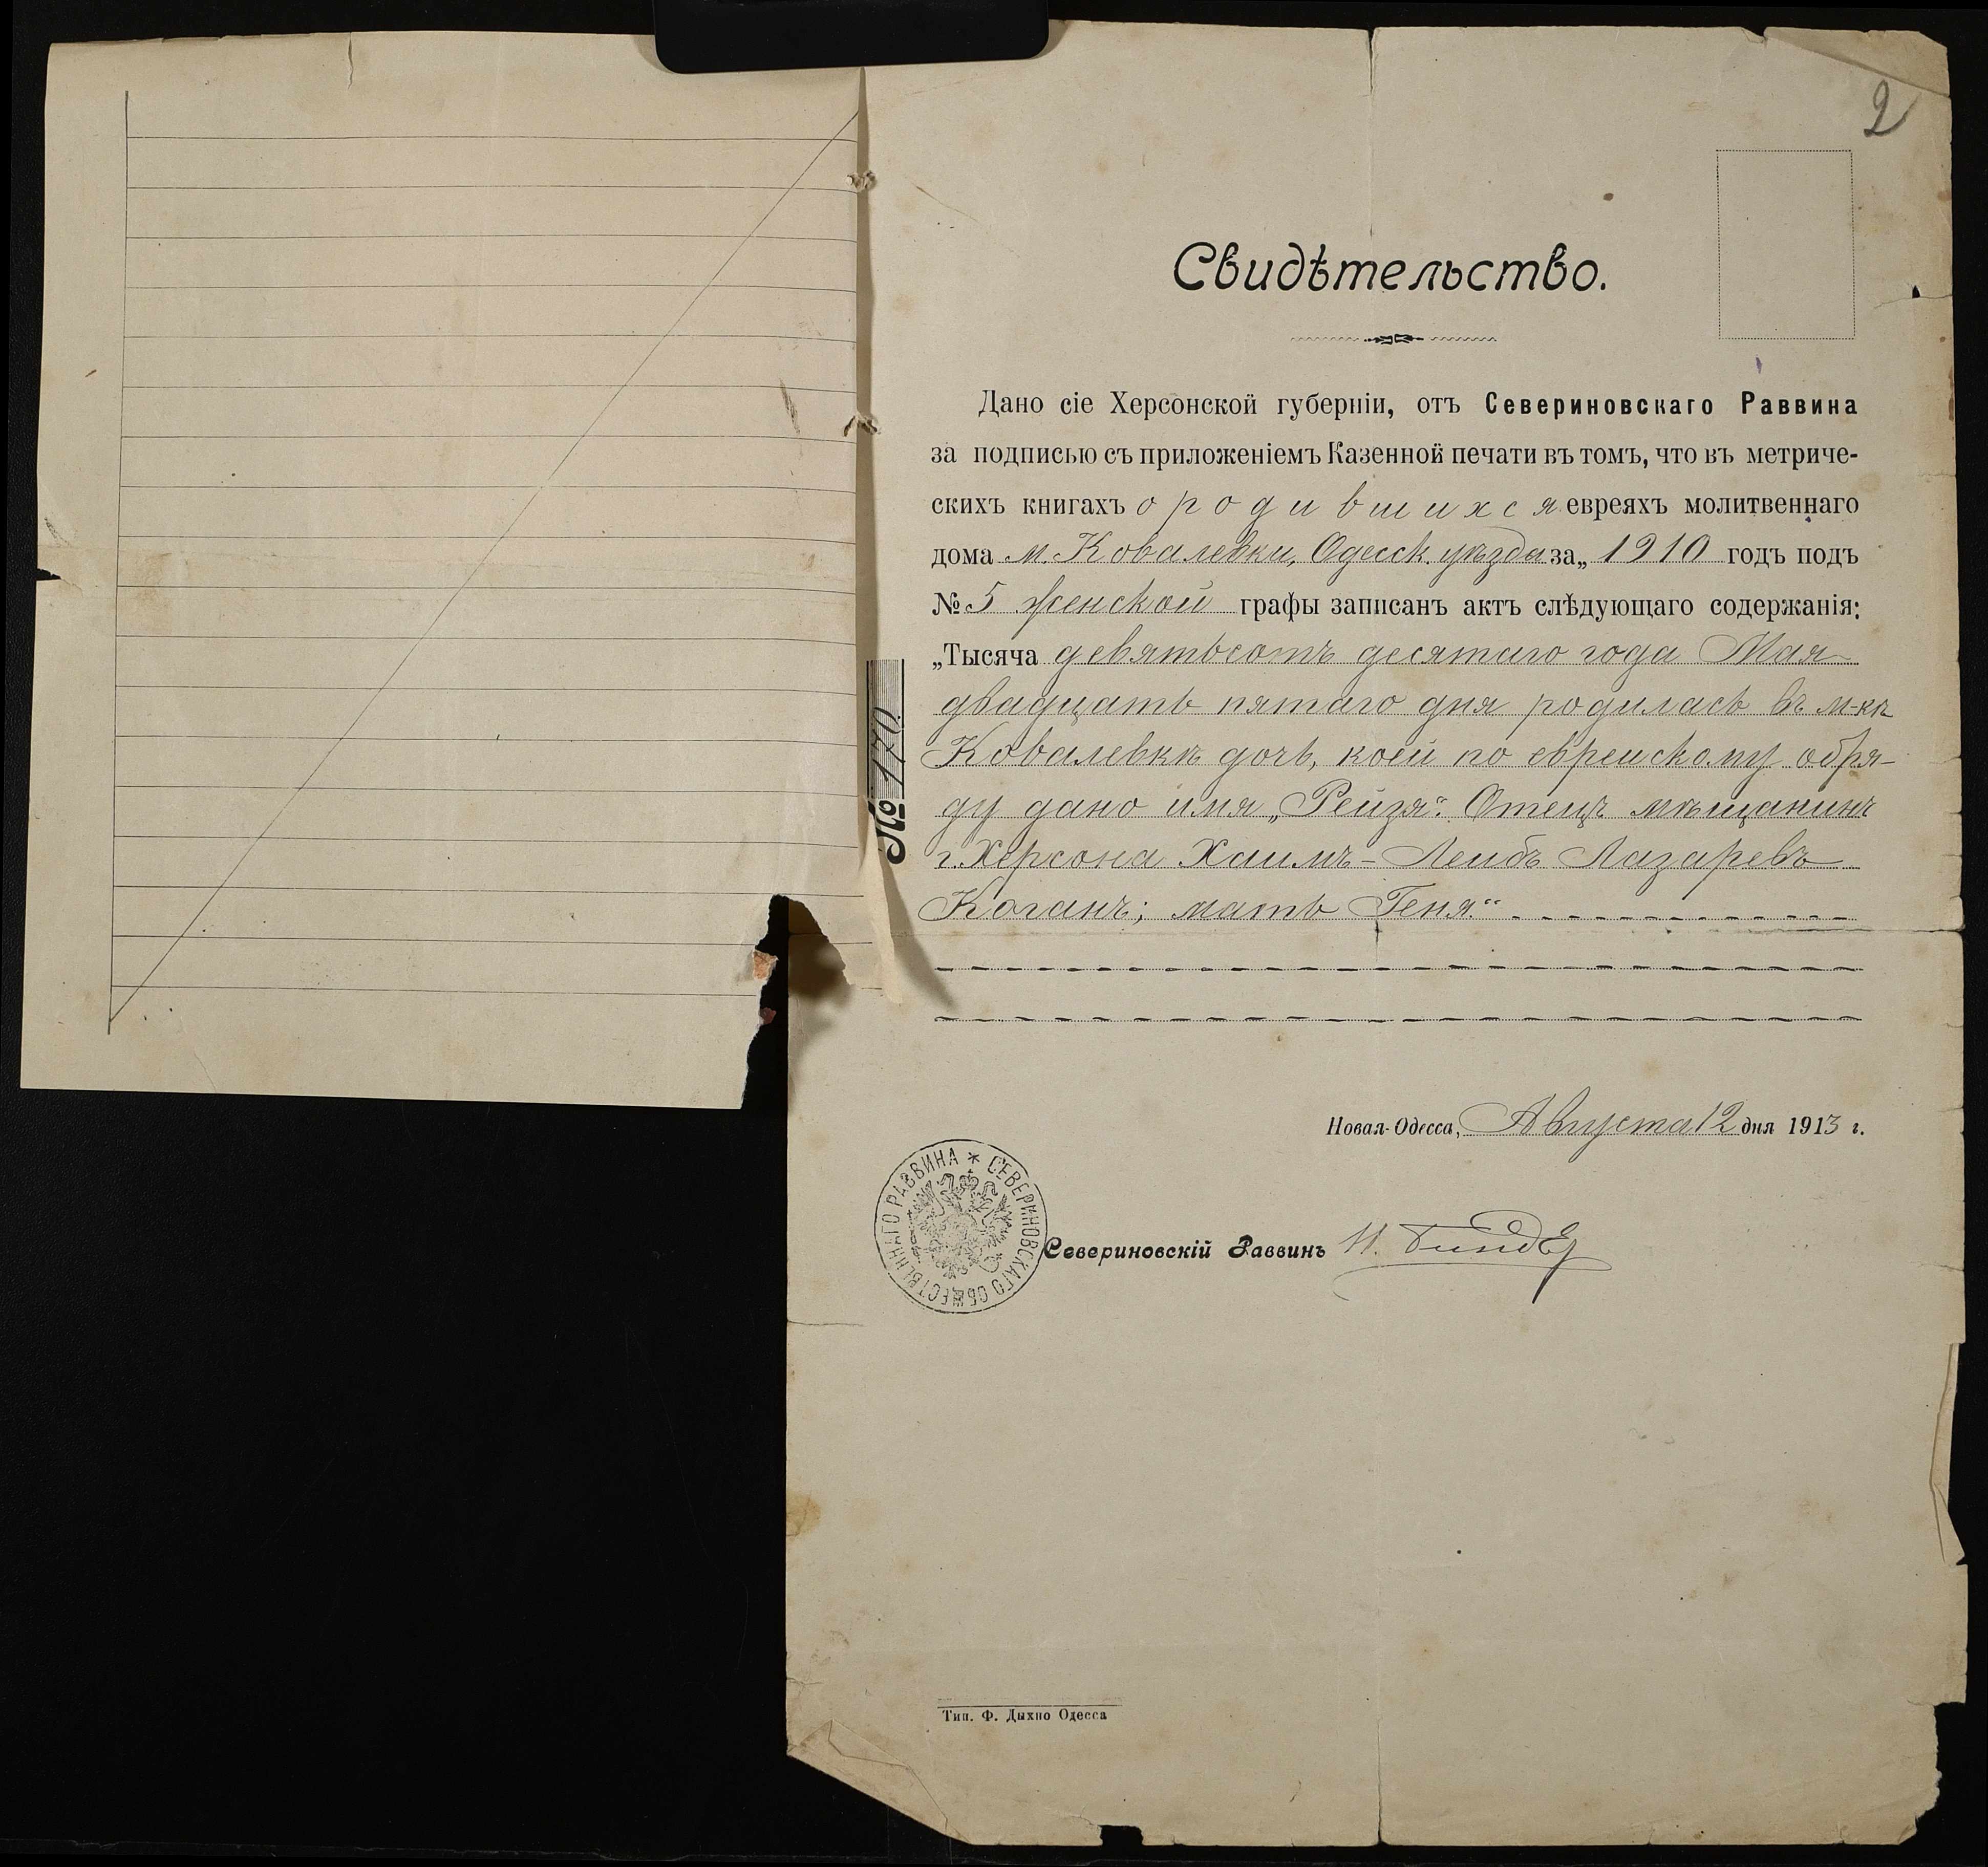 2
Свидѣтельство.
Дано сіе Херсонской губерніи, отъ Севериновскаго Раввина
за подписью съ приложеніемъ Казенной печати въ томъ, что въ метриче-
скихъ книгахъ о родившихся евреяхъ молитвеннаго
дома м. Ковалевки, Одесск. уѣзда за „ 1910 годъ подъ
№ 5 женской графы записанъ актъ слѣдующаго содержанія:
„Тысяча девятьсотъ десятаго года Мая
двадцать пятаго дня родилась въ м-кѣ
Ковалевкѣ дочь, коей по еврейскому обря-
ду дано имя „Рейзя". Отецъ мѣщанинъ
г. Херсона Хаимъ-Лейбъ Лазаревъ
Коганъ; мать Геня."
№ 170
Новая-Одесса, Августа 12 дня 1913 г.
СЕВЕРИНОВСКАГО ОБЩЕСТВЕННАГО РАВВИНА *
Севериновскій Раввинъ
Тип. Ф. Дыхно Одесса